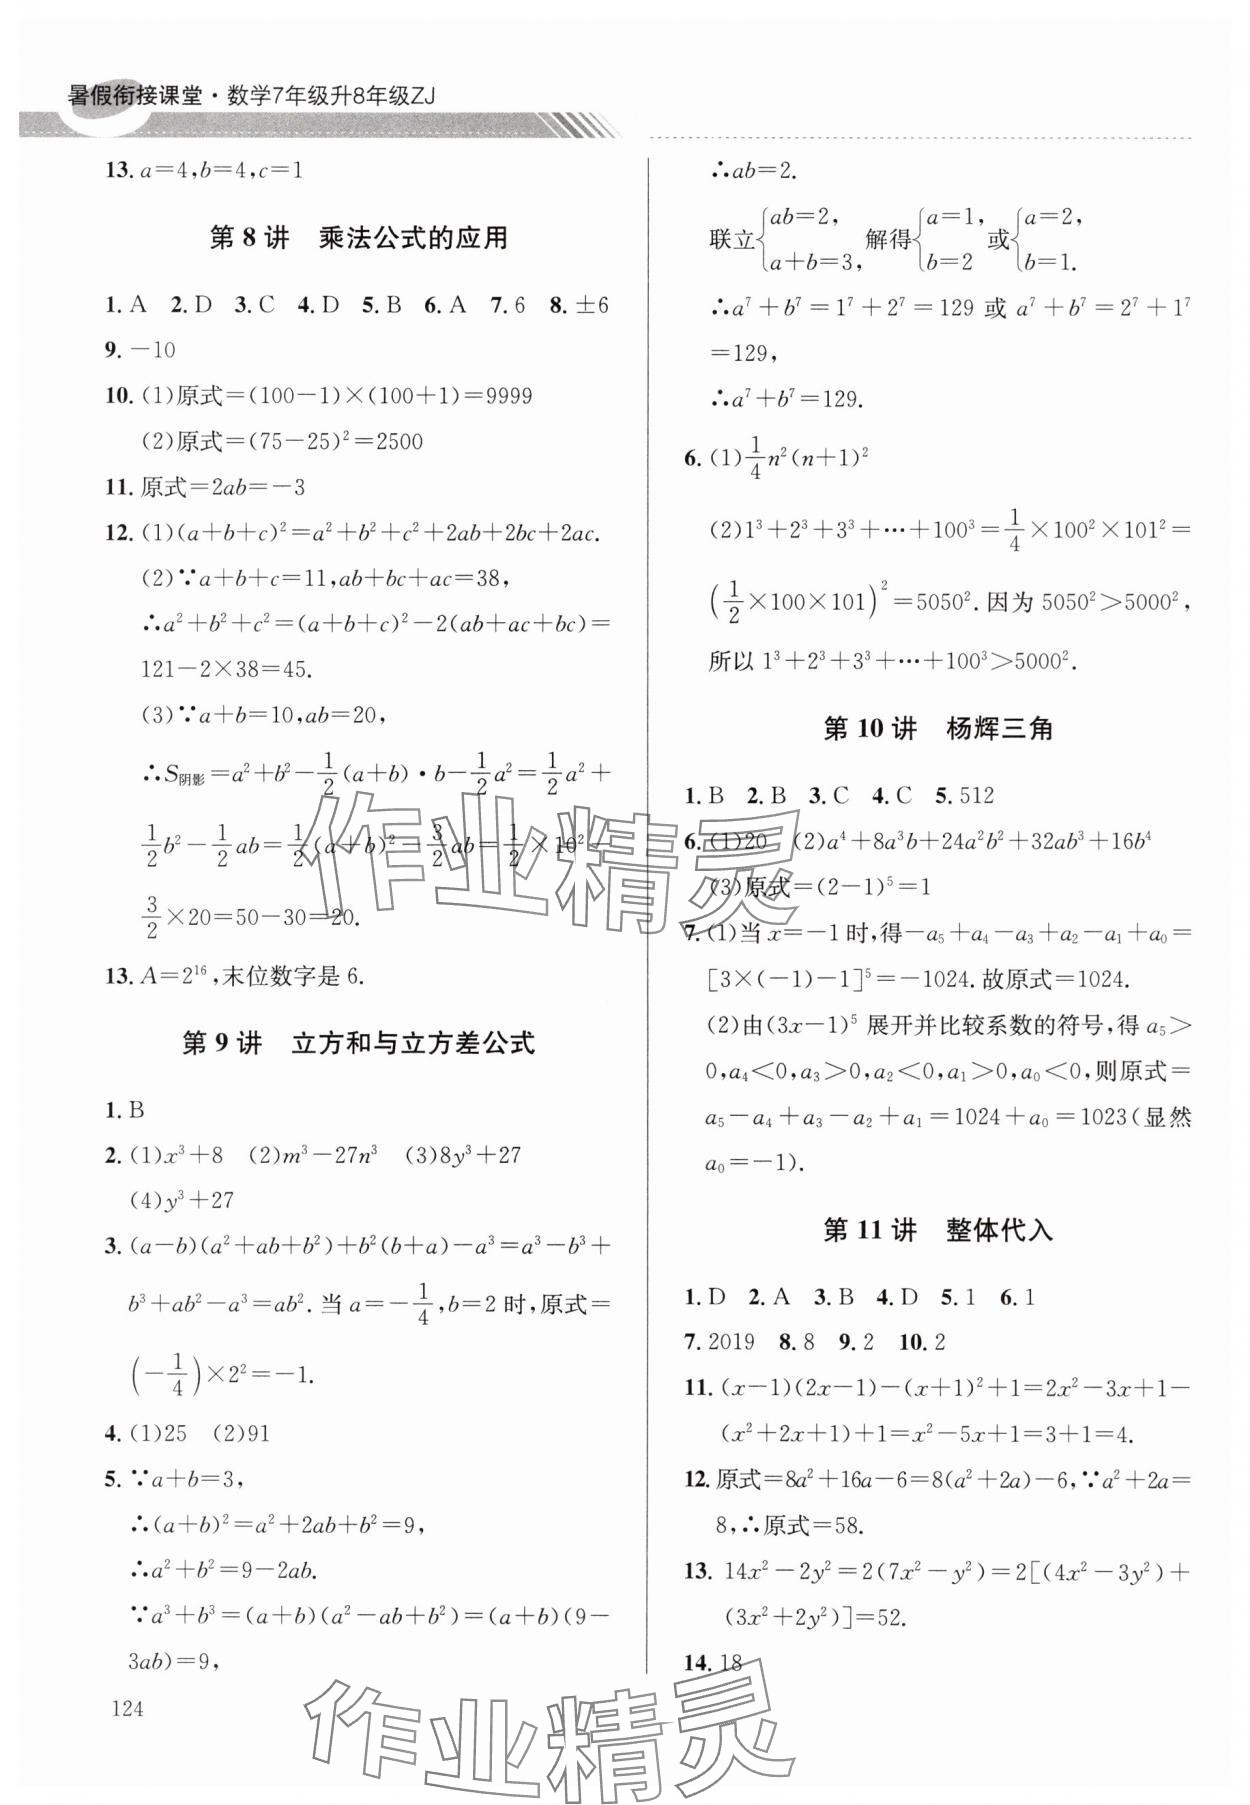 暑假衔接课堂·数学7年级升8年级ZJ
13. a=4,b=4,c=1
第 8 讲 乘法公式的应用
1. A 2. D 3. C 4. D 5. B 6. A 7. 6 8. ±6
9. －10
10. (1)原式=(100－1)×(100+1)=9999
(2)原式=(75－25)²=2500
11. 原式=2ab=－3
12. (1)(a+b+c)²=a²+b²+c²+2ab+2bc+2ac.
(2)∵a+b+c=11,ab+bc+ac=38,
∴a²+b²+c²=(a+b+c)²－2(ab+ac+bc)=
121－2×38=45.
(3)∵a+b=10,ab=20,
∴S阴影=a²+b²－1/2(a+b)·b－1/2a²=1/2a²+
1/2b²－1/2ab=1/2(a+b)²－3/2ab=1/2×10²－
3/2×20=50－30=20.
13. A=2¹⁶,末位数字是 6.
第 9 讲 立方和与立方差公式
1. B
2. (1)x³+8 (2)m³－27n³ (3)8y³+27
(4)y³+27
3. (a－b)(a²+ab+b²)+b²(b+a)－a³=a³－b³+
b³+ab²－a³=ab².当 a=－1/4,b=2 时,原式=
(－1/4)×2²=－1.
4. (1)25 (2)91
5. ∵a+b=3,
∴(a+b)²=a²+2ab+b²=9,
∴a²+b²=9－2ab.
∵a³+b³=(a+b)(a²－ab+b²)=(a+b)(9－
3ab)=9,
124
∴ab=2.
联立{ab=2, a+b=3, 解得{a=1, b=2 或{a=2, b=1.
∴a⁷+b⁷=1⁷+2⁷=129 或 a⁷+b⁷=2⁷+1⁷
=129,
∴a⁷+b⁷=129.
6. (1)1/4n²(n+1)²
(2)1³+2³+3³+…+100³=1/4×100²×101²=
(1/2×100×101)²=5050².因为 5050²>5000²,
所以 1³+2³+3³+…+100³>5000².
第 10 讲 杨辉三角
1. B 2. B 3. C 4. C 5. 512
6. (1)20 (2)a⁴+8a³b+24a²b²+32ab³+16b⁴
(3)原式=(2－1)⁵=1
7. (1)当 x=－1时,得－a₅+a₄－a₃+a₂－a₁+a₀=
[3×(－1)－1]⁵=－1024.故原式=1024.
(2)由(3x－1)⁵ 展开并比较系数的符号,得 a₅>
0,a₄<0,a₃>0,a₂<0,a₁>0,a₀<0,则原式=
a₅－a₄+a₃－a₂+a₁=1024+a₀=1023(显然
a₀=－1).
第 11 讲 整体代入
1. D 2. A 3. B 4. D 5. 1 6. 1
7. 2019 8. 8 9. 2 10. 2
11. (x－1)(2x－1)－(x+1)²+1=2x²－3x+1－
(x²+2x+1)+1=x²－5x+1=3+1=4.
12. 原式=8a²+16a－6=8(a²+2a)－6,∵a²+2a=
8,∴原式=58.
13. 14x²－2y²=2(7x²－y²)=2[(4x²－3y²)+
(3x²+2y²)]=52.
14. 18
作业精灵
作业精灵